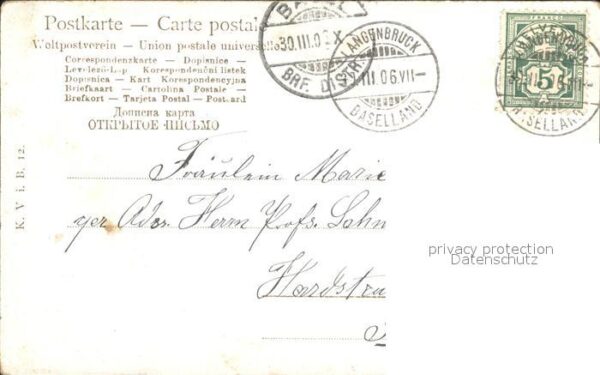 Postkarte — Carte postale
Weltpostverein – Union postale universelle
Correspondenzkarte – Dopisnice –
Levelező-Lap Korespondenční listek
Dopisnica – Kart Korespondencyjna
Briefkaart – Cartolina Postale –
Brefkort – Tarjeta Postal – Postcard
Дописна карта
ОТКРЫТОЕ ПИСЬМО
K. V i. B. 12.
BASEL
30.III.06 X
BRF. DISTR.
LANGENBRUCK
III.06.VII–
BASELLAND
FRANCO
5
LANGENBRUCK
BASELLAND
Fräulein Marie
per Adr. Herrn Profs. Sohn
Hardstra
privacy protection
Datenschutz